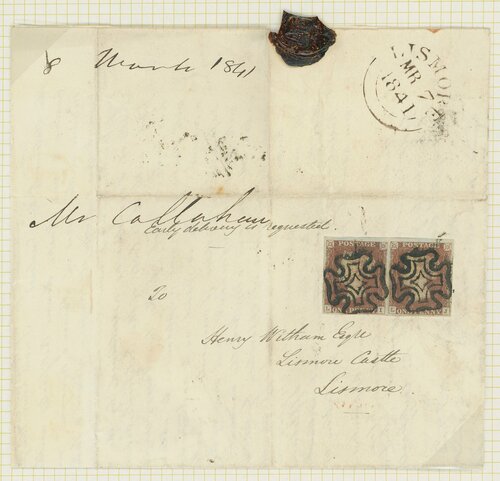 8 March 1841
LISMORE
MR 7
1841
Mr Callahan
Early delivery is requested.
To
POSTAGE POSTAGE
ONE PENNY
Henry Witham Esqre
Lismore Castle
Lismore